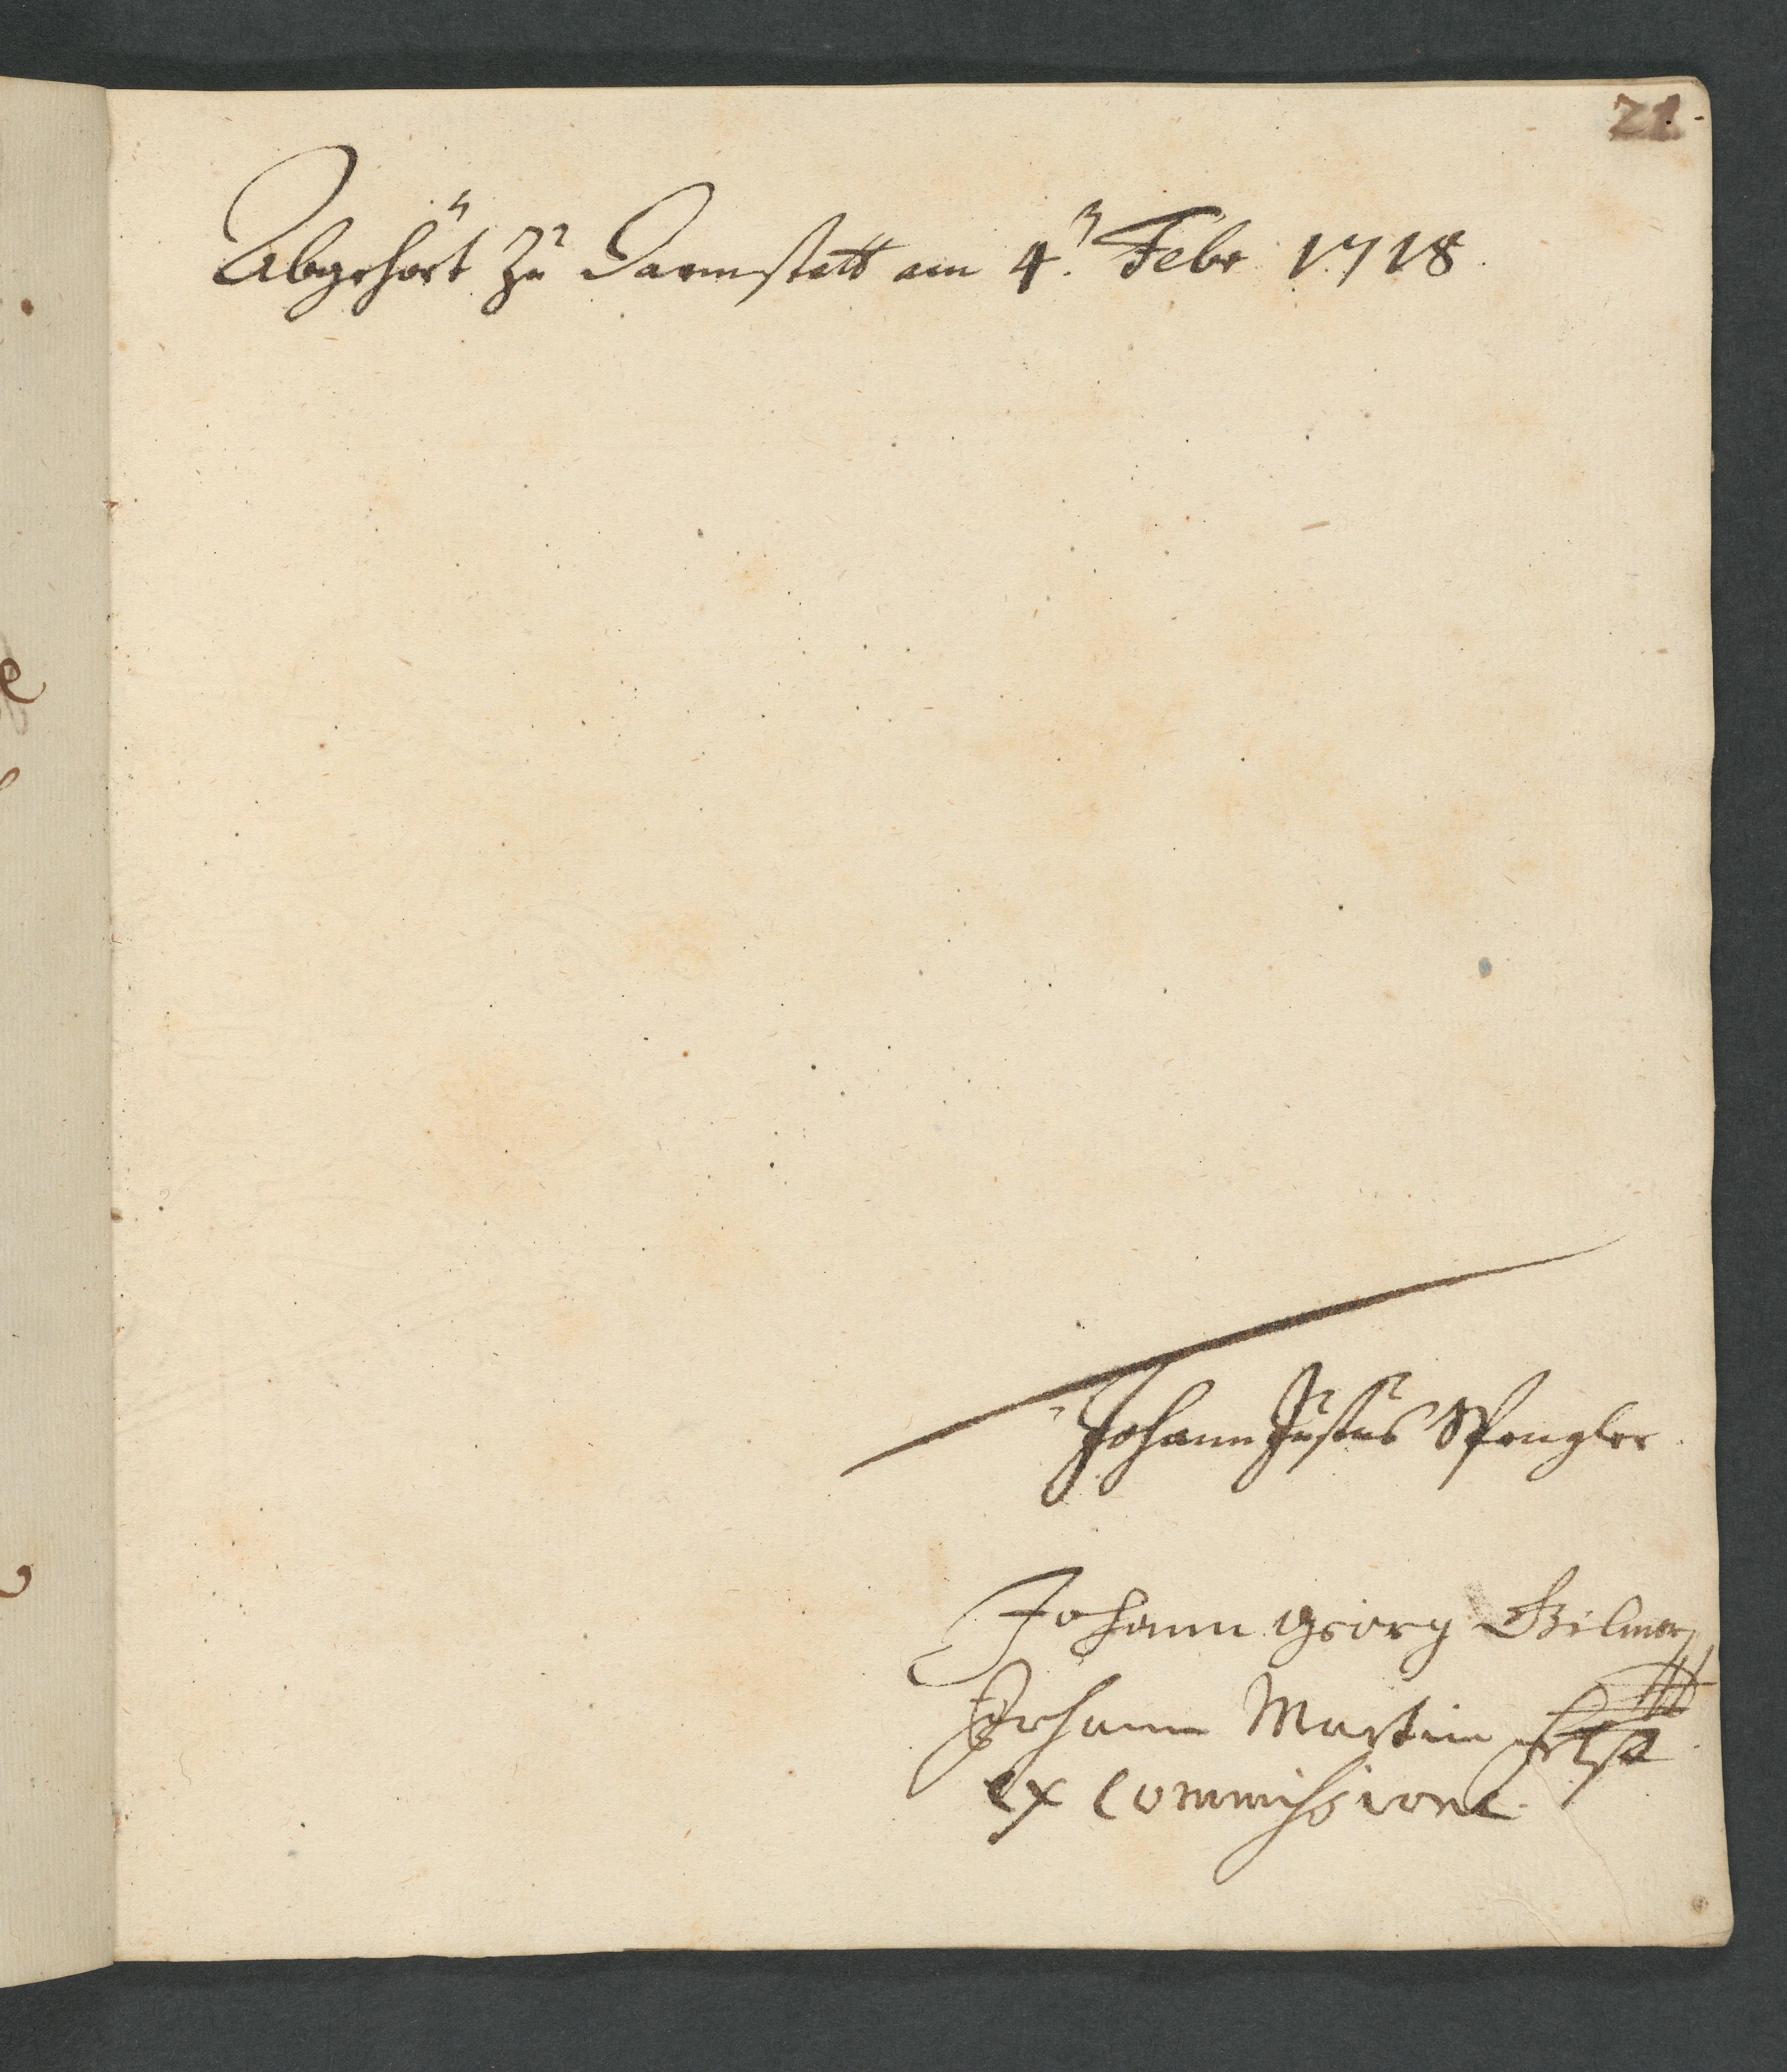 21.
Abgehört zu Darmstatt am 4ᵗ. Febr 1718.
Johann Justus Spengler
Johann Georg
Johann Martin
ex commissione.